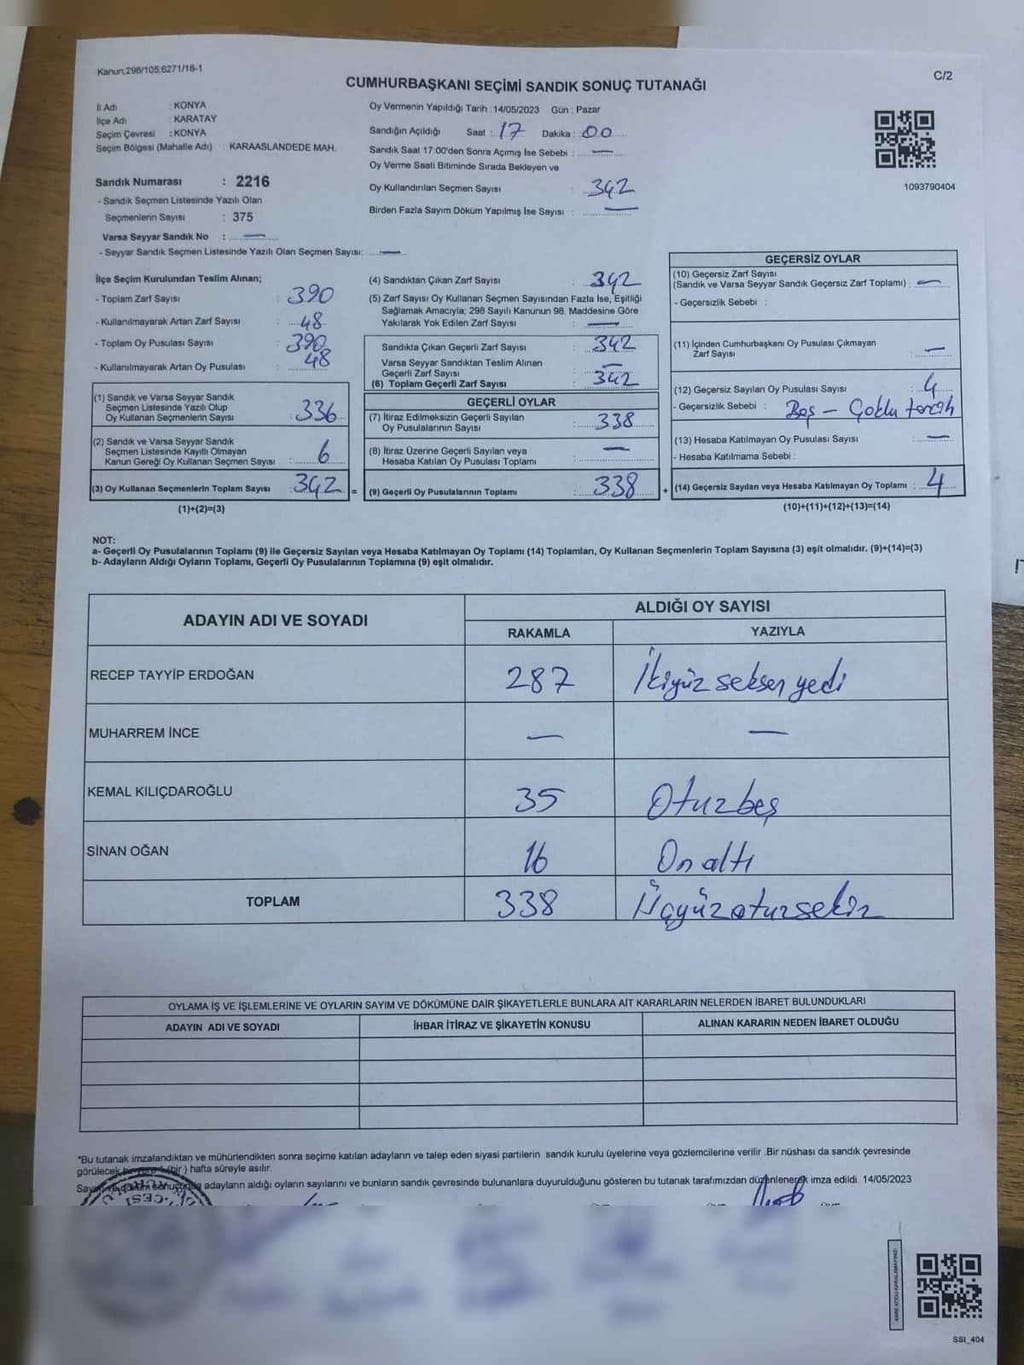 Kanun:298/105;6271/18-1
CUMHURBAŞKANI SEÇİMİ SANDIK SONUÇ TUTANAĞI
C/2
İl Adı : KONYA
İlçe Adı : KARATAY
Seçim Çevresi : KONYA
Seçim Bölgesi (Mahalle Adı) KARAASLANDEDE MAH.
Sandık Numarası : 2216
- Sandık Seçmen Listesinde Yazılı Olan
Seçmenlerin Sayısı : 375
Varsa Seyyar Sandık No : —
- Seyyar Sandık Seçmen Listesinde Yazılı Olan Seçmen Sayısı: —
Oy Vermenin Yapıldığı Tarih :14/05/2023 Gün : Pazar
Sandığın Açıldığı Saat : 17 Dakika : 00
Sandık Saat 17:00'den Sonra Açımış İse Sebebi : —
Oy Verme Saati Bitiminde Sırada Bekleyen ve
Oy Kullandırılan Seçmen Sayısı : 342
Birden Fazla Sayım Döküm Yapılmış İse Sayısı : —
1093790404
İlçe Seçim Kurulundan Teslim Alınan;
- Toplam Zarf Sayısı : 390
- Kullanılmayarak Artan Zarf Sayısı : 48
- Toplam Oy Pusulası Sayısı : 390
- Kullanılmayarak Artan Oy Pusulası : 48
(1) Sandık ve Varsa Seyyar Sandık
Seçmen Listesinde Yazılı Olup
Oy Kullanan Seçmenlerin Sayısı : 336
(2) Sandık ve Varsa Seyyar Sandık
Seçmen Listesinde Kayıtlı Olmayan
Kanun Gereği Oy Kullanan Seçmen Sayısı : 6
(3) Oy Kullanan Seçmenlerin Toplam Sayısı : 342 =
(1)+(2)=(3)
(4) Sandıktan Çıkan Zarf Sayısı : 342
(5) Zarf Sayısı Oy Kullanan Seçmen Sayısından Fazla İse, Eşitliği
Sağlamak Amacıyla; 298 Sayılı Kanunun 98. Maddesine Göre
Yakılarak Yok Edilen Zarf Sayısı : —
Sandıkta Çıkan Geçerli Zarf Sayısı : 342
Varsa Seyyar Sandıktan Teslim Alınan
Geçerli Zarf Sayısı : —
(6) Toplam Geçerli Zarf Sayısı : 342
GEÇERLİ OYLAR
(7) İtiraz Edilmeksizin Geçerli Sayılan
Oy Pusulalarının Sayısı : 338
(8) İtiraz Üzerine Geçerli Sayılan veya
Hesaba Katılan Oy Pusulası Toplamı : —
(9) Geçerli Oy Pusulalarının Toplamı : 338 +
GEÇERSİZ OYLAR
(10) Geçersiz Zarf Sayısı
(Sandık ve Varsa Seyyar Sandık Geçersiz Zarf Toplamı) : —
- Geçersizlik Sebebi :
(11) İçinden Cumhurbaşkanı Oy Pusulası Çıkmayan
Zarf Sayısı : —
(12) Geçersiz Sayılan Oy Pusulası Sayısı : 4
- Geçersizlik Sebebi : Boş - Çoklu tercih
(13) Hesaba Katılmayan Oy Pusulası Sayısı : —
- Hesaba Katılmama Sebebi :
(14) Geçersiz Sayılan veya Hesaba Katılmayan Oy Toplamı : 4
(10)+(11)+(12)+(13)=(14)
NOT:
a- Geçerli Oy Pusulalarının Toplamı (9) ile Geçersiz Sayılan veya Hesaba Katılmayan Oy Toplamı (14) Toplamları, Oy Kullanan Seçmenlerin Toplam Sayısına (3) eşit olmalıdır. (9)+(14)=(3)
b- Adayların Aldığı Oyların Toplamı, Geçerli Oy Pusulalarının Toplamına (9) eşit olmalıdır.
ADAYIN ADI VE SOYADI
ALDIĞI OY SAYISI
RAKAMLA YAZIYLA
RECEP TAYYİP ERDOĞAN 287 İkiyüz seksen yedi
MUHARREM İNCE — —
KEMAL KILIÇDAROĞLU 35 Otuzbeş
SİNAN OĞAN 16 On altı
TOPLAM 338 Üçyüzotuzsekiz
OYLAMA İŞ VE İŞLEMLERİNE VE OYLARIN SAYIM VE DÖKÜMÜNE DAİR ŞİKAYETLERLE BUNLARA AİT KARARLARIN NELERDEN İBARET BULUNDUKLARI
ADAYIN ADI VE SOYADI İHBAR İTİRAZ VE ŞİKAYETİN KONUSU ALINAN KARARIN NEDEN İBARET OLDUĞU
*Bu tutanak imzalandıktan ve mühürlendikten sonra seçime katılan adayların ve talep eden siyasi partilerin sandık kurulu üyelerine veya gözlemcilerine verilir .Bir nüshası da sandık çevresinde
görülecek (bir ) hafta süreyle asılır.
adayların aldığı oyların sayılarını ve bunların sandık çevresinde bulunanlara duyurulduğunu gösteren bu tutanak tarafımızdan düzenlenerek imza edildi. 14/05/2023
SSI_404